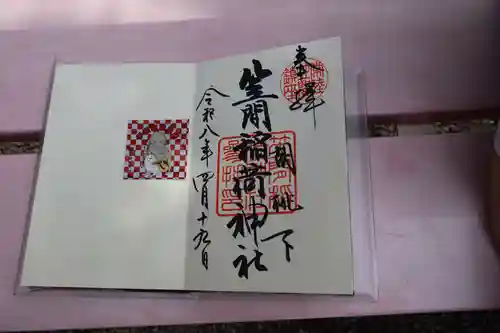 奉拝
笠間稲荷神社
胡桃下
令和八年四月十九日